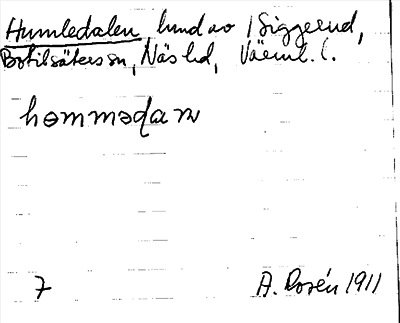 Humledalen, lund av /Siggerud,
Botilsäters sn, Näs hd, Värml. l.
hɵmmədaɴ
7 A. Rosén 1911